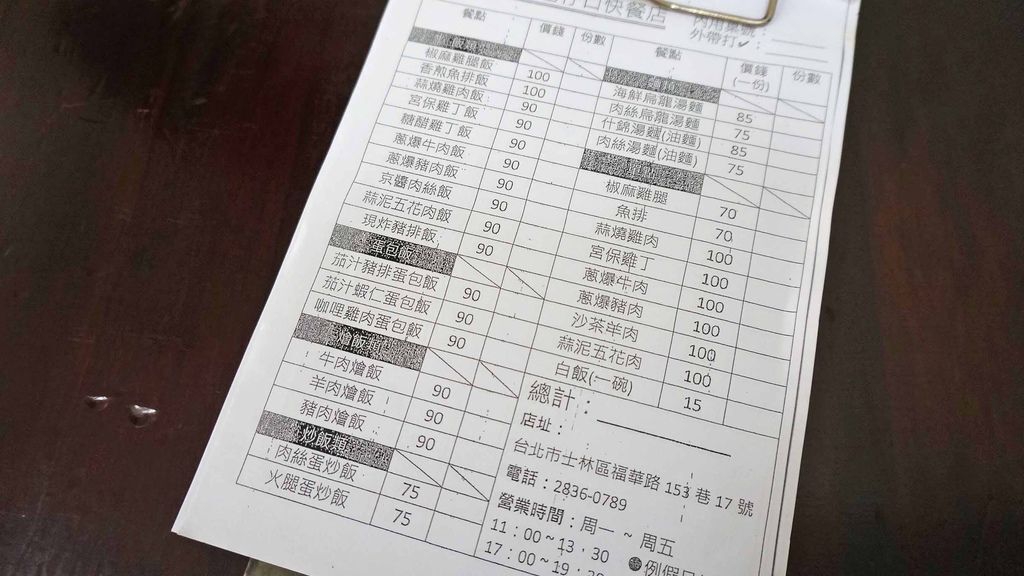 日快餐店
外帶打✓：
餐點 價錢 份數
椒麻雞腿飯 100
香煎魚排飯 100
蒜燒雞肉飯 90
宮保雞丁飯 90
糖醋雞丁飯 90
蔥爆牛肉飯 90
蔥爆豬肉飯 90
京醬肉絲飯 90
蒜泥五花肉飯 90
現炸豬排飯 90
蛋包飯
茄汁豬排蛋包飯 90
茄汁蝦仁蛋包飯 90
咖哩雞肉蛋包飯 90
燴飯類
牛肉燴飯 90
羊肉燴飯 90
豬肉燴飯 90
炒飯類
肉絲蛋炒飯 75
火腿蛋炒飯 75
餐點 價錢(一份) 份數
海鮮烏龍湯麵 85
肉絲烏龍湯麵 75
什錦湯麵(油麵) 85
肉絲湯麵(油麵) 75
椒麻雞腿 70
魚排 70
蒜燒雞肉 100
宮保雞丁 100
蔥爆牛肉 100
蔥爆豬肉 100
沙茶羊肉 100
蒜泥五花肉 100
白飯(一碗) 15
總計：
店址：
台北市士林區福華路 153 巷 17 號
電話：2836-0789
營業時間：周一 ~ 周五
11：00~13：30 ●例假日
17：00~19：30